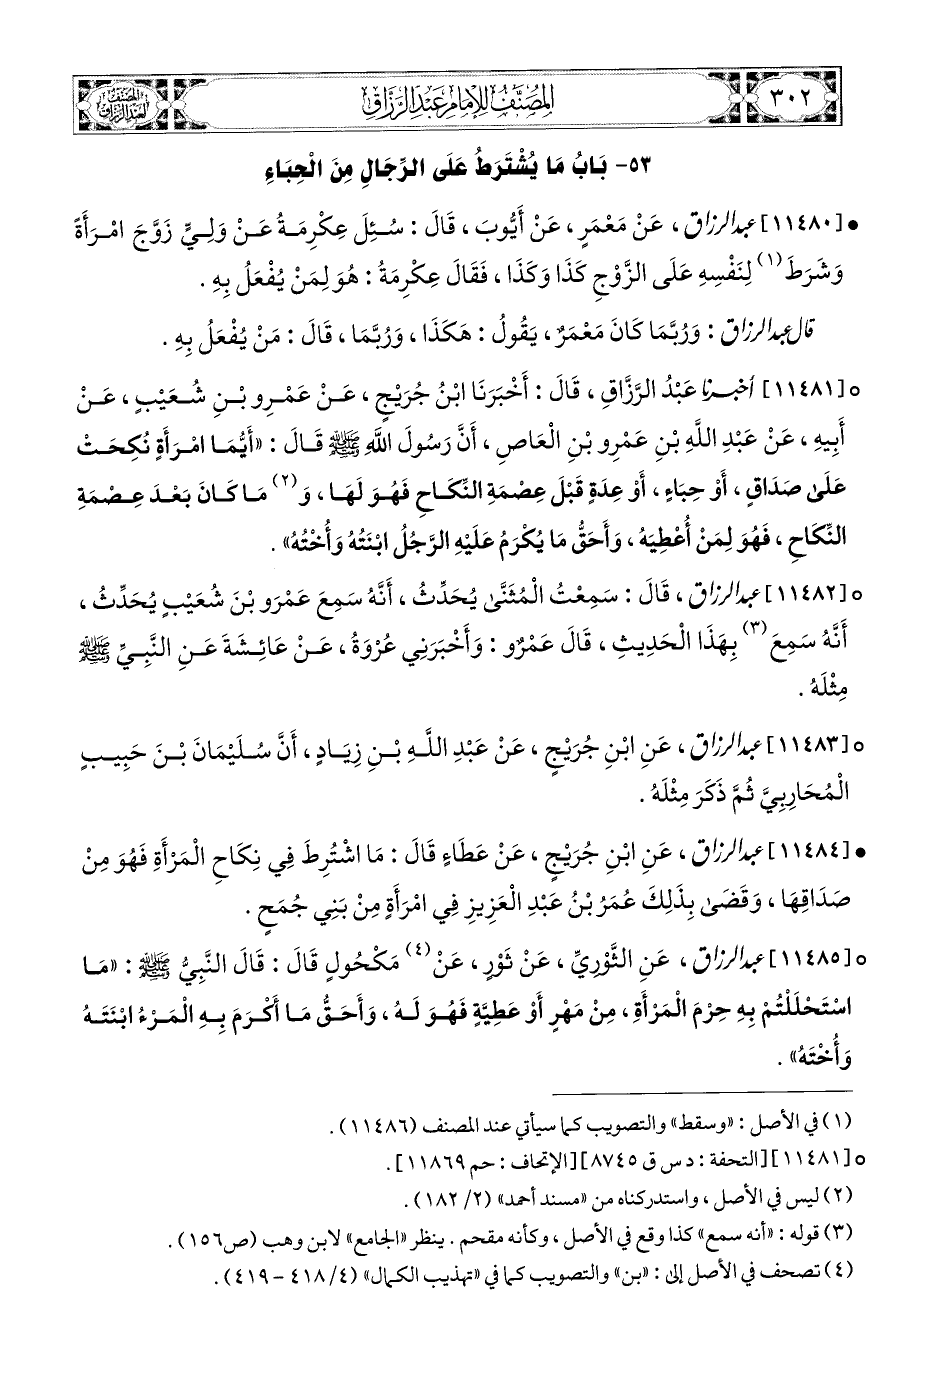 ٣٠٢
المصنف للإمام عبد الرزاق
المصنف
لعبد الرزاق
٥٣- بَابُ مَا يُشْتَرَطُ عَلَى الرِّجَالِ مِنَ الْحِبَاءِ
• [١١٤٨٠] عبد الرزاق، عَنْ مَعْمَرٍ، عَنْ أَيُّوبَ، قَالَ: سُئِلَ عِكْرِمَةُ عَنْ وَلِيٍّ زَوَّجَ امْرَأَةً
وَشَرَطَ (١) لِنَفْسِهِ عَلَى الزَّوْجِ كَذَا وَكَذَا، فَقَالَ عِكْرِمَةُ: هُوَ لِمَنْ يُفْعَلُ بِهِ.
قال عبد الرزاق: وَرُبَّمَا كَانَ مَعْمَرٌ، يَقُولُ: هَكَذَا، وَرُبَّمَا، قَالَ: مَنْ يُفْعَلُ بِهِ.
٥ [١١٤٨١] أخبرنا عَبْدُ الرَّزَّاقِ، قَالَ: أَخْبَرَنَا ابْنُ جُرَيْجٍ، عَنْ عَمْرِو بْنِ شُعَيْبٍ، عَنْ
أَبِيهِ، عَنْ عَبْدِ اللَّهِ بْنِ عَمْرِو بْنِ الْعَاصِ، أَنَّ رَسُولَ اللَّهِ ﷺ قَالَ: «أَيُّمَا امْرَأَةٍ نُكِحَتْ
عَلَىٰ صَدَاقٍ، أَوْ حِبَاءٍ، أَوْ عِدَةٍ قَبْلَ عِصْمَةِ النِّكَاحِ فَهُوَ لَهَا، وَ(٢) مَا كَانَ بَعْدَ عِصْمَةِ
النِّكَاحِ، فَهُوَ لِمَنْ أُعْطِيَهُ، وَأَحَقُّ مَا يُكْرَمُ عَلَيْهِ الرَّجُلُ ابْنَتُهُ وَأُخْتُهُ».
٥ [١١٤٨٢] عبد الرزاق، قَالَ: سَمِعْتُ الْمُثَنَّىٰ يُحَدِّثُ، أَنَّهُ سَمِعَ عَمْرَو بْنَ شُعَيْبٍ يُحَدِّثُ،
أَنَّهُ سَمِعَ (٣) بِهَذَا الْحَدِيثِ، قَالَ عَمْرٌو: وَأَخْبَرَنِي عُرْوَةُ، عَنْ عَائِشَةَ عَنِ النَّبِيِّ ﷺ
مِثْلَهُ.
٥ [١١٤٨٣] عبد الرزاق، عَنِ ابْنِ جُرَيْجٍ، عَنْ عَبْدِ اللَّهِ بْنِ زِيَادٍ، أَنَّ سُلَيْمَانَ بْنَ حَبِيبٍ
الْمُحَارِبِيَّ ثُمَّ ذَكَرَ مِثْلَهُ.
• [١١٤٨٤] عبد الرزاق، عَنِ ابْنِ جُرَيْجٍ، عَنْ عَطَاءٍ قَالَ: مَا اشْتُرِطَ فِي نِكَاحِ الْمَرْأَةِ فَهُوَ مِنْ
صَدَاقِهَا، وَقَضَىٰ بِذَلِكَ عُمَرُ بْنُ عَبْدِ الْعَزِيزِ فِي امْرَأَةٍ مِنْ بَنِي جُمَحٍ.
٥ [١١٤٨٥] عبد الرزاق، عَنِ الثَّوْرِيِّ، عَنْ ثَوْرٍ، عَنْ (٤) مَكْحُولٍ قَالَ: قَالَ النَّبِيُّ ﷺ: «مَا
اسْتَحْلَلْتُمْ بِهِ حِرْمَ الْمَرْأَةِ، مِنْ مَهْرٍ أَوْ عَطِيَّةٍ فَهُوَ لَهُ، وَأَحَقُّ مَا أَكْرَمَ بِهِ الْمَرْءُ ابْنَتَهُ
وَأُخْتَهُ».
(١) في الأصل: «وسقط» والتصويب كما سيأتي عند المصنف (١١٤٨٦).
٥ [١١٤٨١] [التحفة: د س ق ٨٧٤٥] [الإتحاف: حم ١١٨٦٩].
(٢) ليس في الأصل، واستدركناه من «مسند أحمد» (٢/ ١٨٢).
(٣) قوله: «أنه سمع» كذا وقع في الأصل، وكأنه مقحم. ينظر «الجامع» لابن وهب (ص١٥٦).
(٤) تصحف في الأصل إلى: «بن» والتصويب كما في «تهذيب الكمال» (٤/ ٤١٨ - ٤١٩).